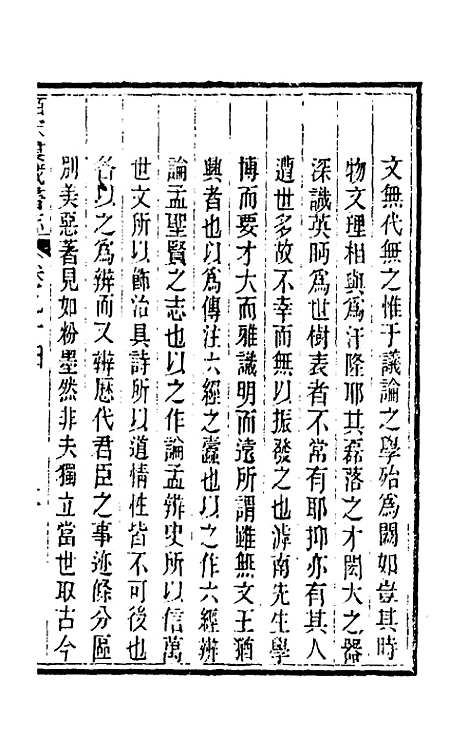 文無代無之惟于議論之學殆為闕如豈其時
物文理相與為汙隆耶其磊落之才閎大之器
深識英眄為世樹表者不常有耶抑亦有其人
遭世多故不幸而無以振發之也滹南先生學
博而要才大而雅識明而遠所謂雖無文王猶
興者也以為傳注六經之蠹也以之作六經辨
論孟聖賢之志也以之作論孟辨史所以信萬
世文所以飾治具詩所以道情性皆不可後也
各以之為辨而又辨歷代君臣之事迹條分區
別美惡著見如粉墨然非夫獨立當世取古今